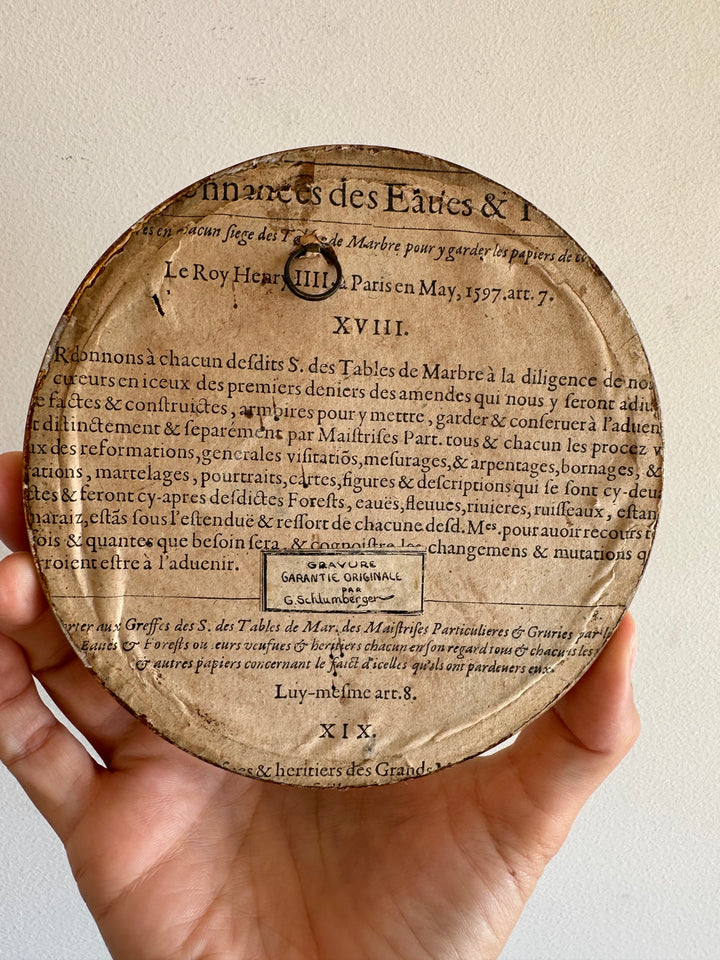 onnances des Eaües & 
en chacun siege des Tables de Marbre pour y garder les papiers de
Le Roy Henry IIII. à Paris en May, 1597. art. 7.
XVIII.
Rdonnons à chacun desdits S. des Tables de Marbre à la diligence de nos
cureurs en iceux des premiers deniers des amendes qui nous y seront adiu
e factes & construictes, armoires pour y mettre, garder & conseruer à l'aduen
t distinctement & separement par Maistrises Part. tous & chacun les procez v
ux des reformations, generales visitatiõs, mesurages, & arpentages, bornages, &
rations, martelages, pourtraits, cartes, figures & descriptions qui se sont cy-deu
ctes & seront cy-apres desdictes Forests, eauës, fleuues, riuieres, ruisseaux, estan
maraiz, estãs sous l'estenduë & ressort de chacune desd. Mes. pour auoir recours t
fois & quantes que besoin sera, & cognoistre changemens & mutations q
rroient estre à l'aduenir.
GRAVURE
GARANTIE ORIGINALE
PAR
G. Schlumberger
orter aux Greffes des S. des Tables de Mar. des Maistrises Particulieres & Gruries par
Eaües & Forests ou leurs veufues & heritiers chacun en son regard tous & chacuns les
& autres papiers concernant le faict d'icelles qu'ils ont pardeuers eux.
Luy-mesme art. 8.
XIX.
es & heritiers des Grands